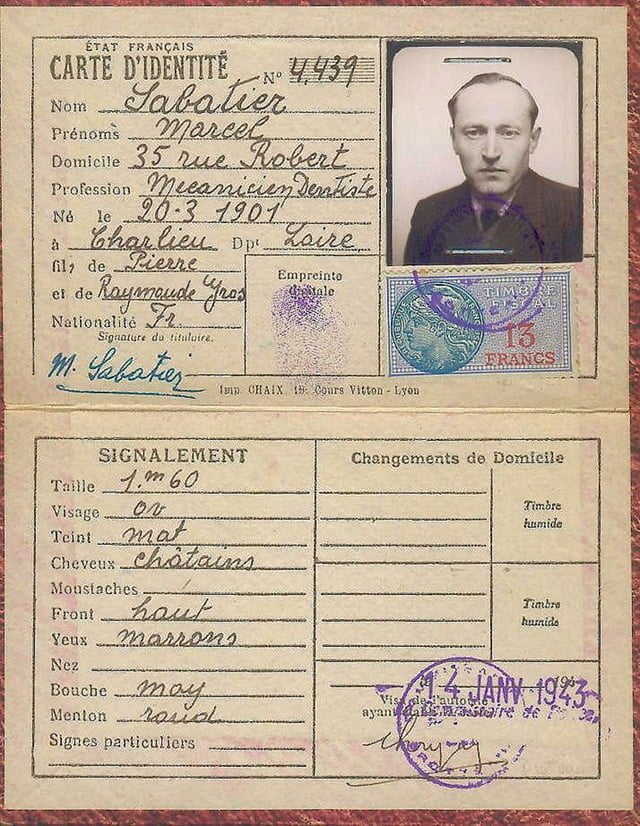 ÉTAT FRANÇAIS
CARTE D'IDENTITÉ
N° 4.439
Nom Sabatier
Prénoms Marcel
Domicile 35 rue Robert
Profession Mecanicien Dentiste
Né le 20-3 1901
à Charlieu Dpt Loire
fils de Pierre
et de Raymonde Gros
Nationalité Fr.
Signature du titulaire.
M. Sabatier
Empreinte
digitale
TIMBRE
FISCAL
13
FRANCS
Imp. CHAIX, 19, Cours Vitton - Lyon
SIGNALEMENT
Taille 1.m60
Visage ov
Teint mat
Cheveux châtains
Moustaches
Front haut
Yeux marrons
Nez
Bouche moy
Menton rond
Signes particuliers
Changements de Domicile
Timbre
humide
Timbre
humide
14 JANV 1943
Visa de l'autorité